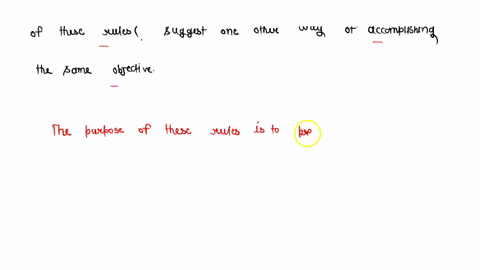 of these rules(. Suggest one other way of accomplishing
the same objective.
The purpose of these rules is to